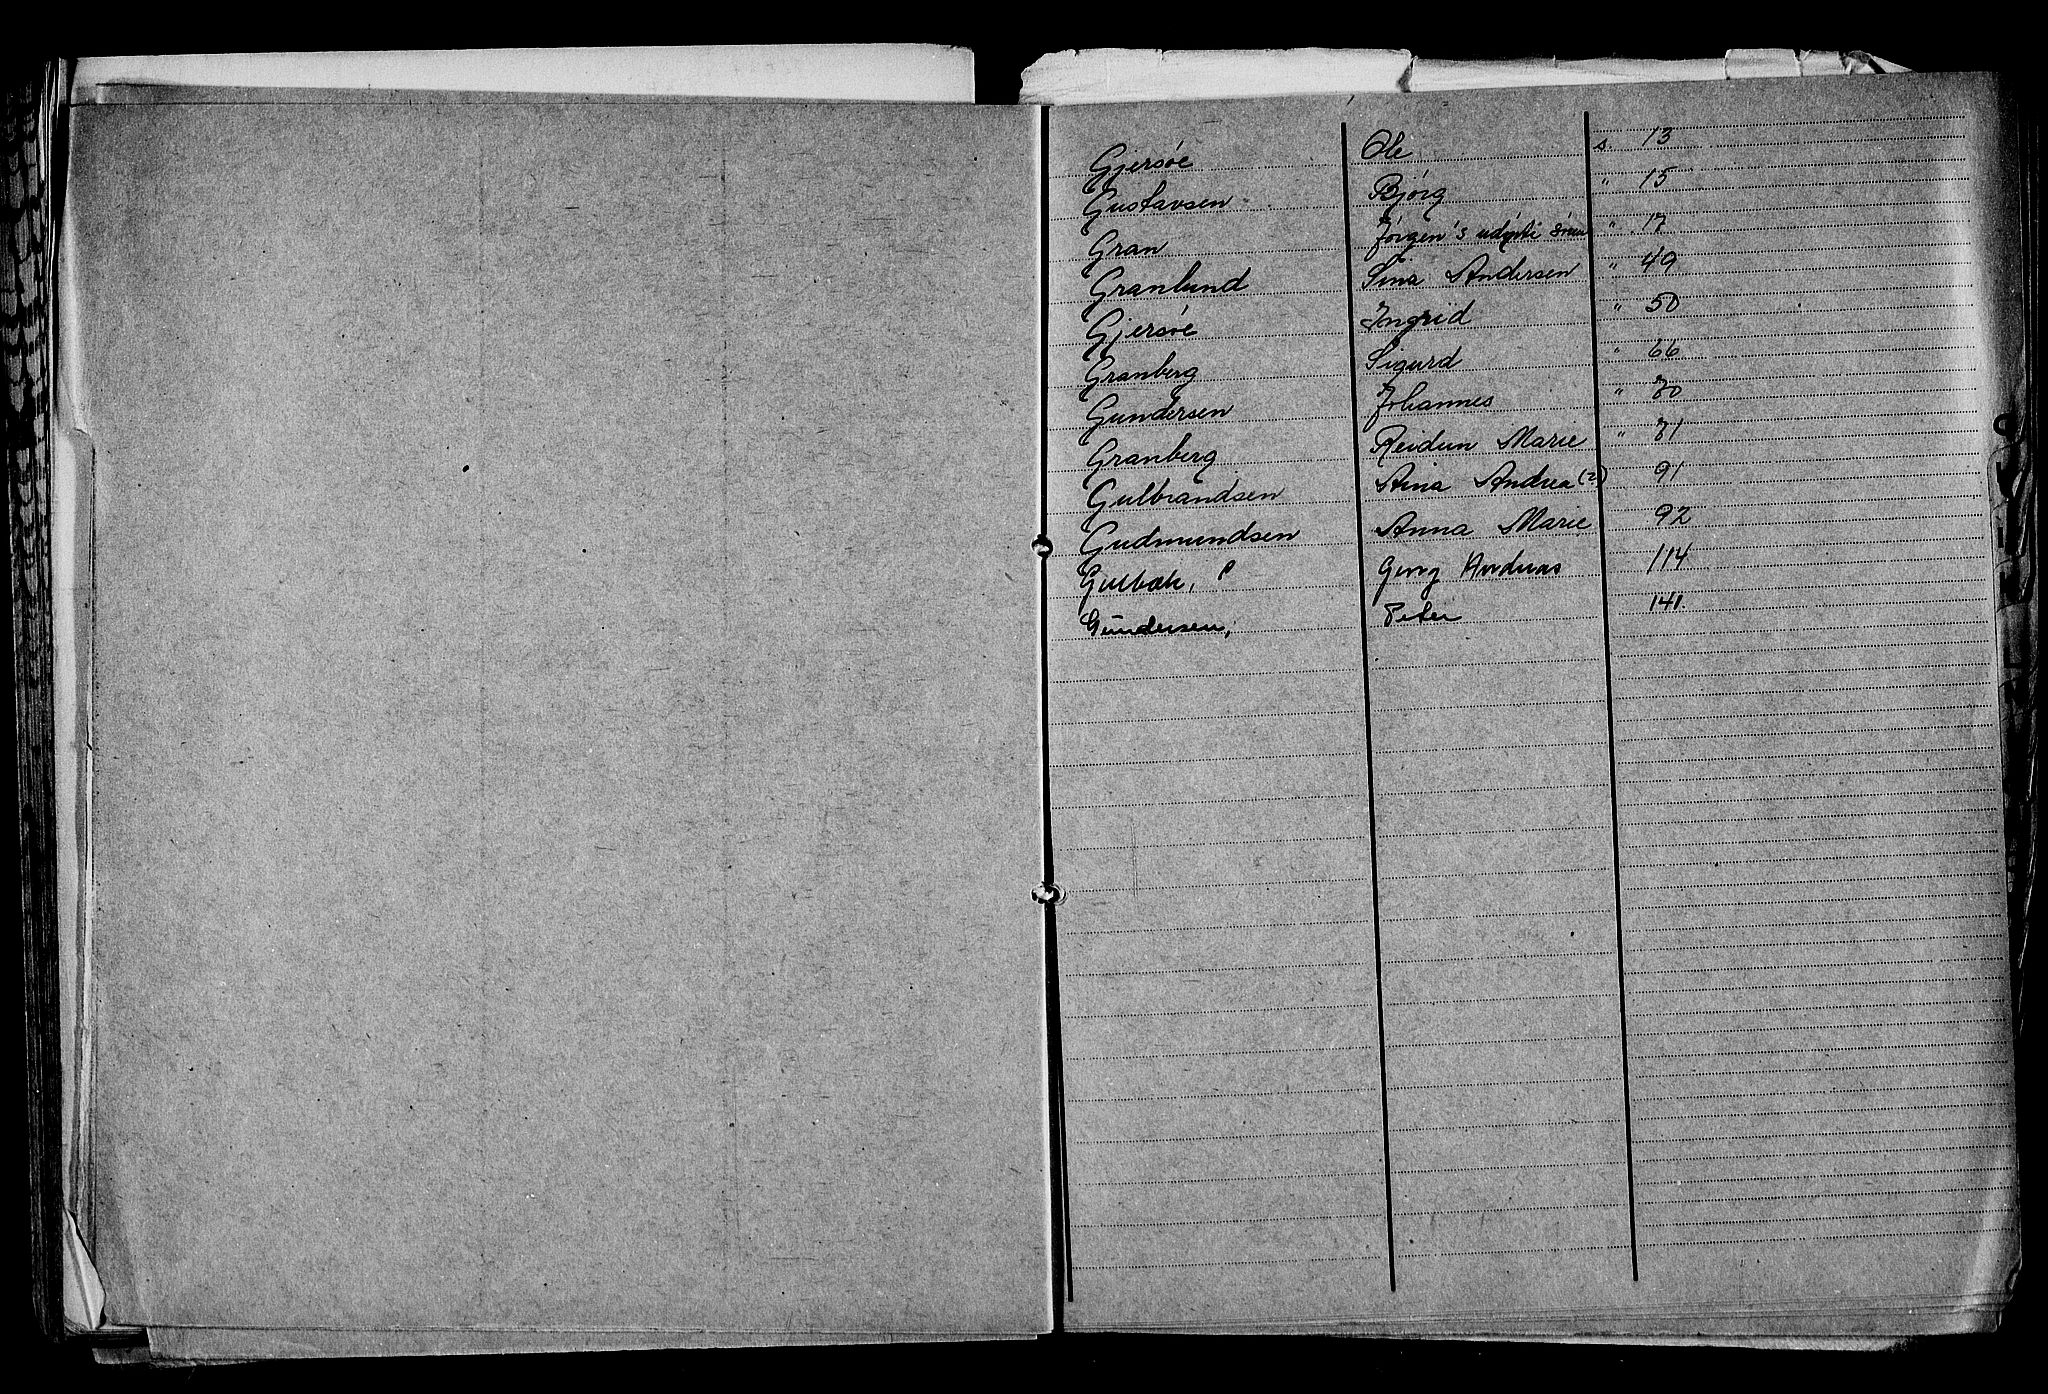 Gjersøe Ole s. 13
Gustavsen Bjørg " 15
Gran Jörgen's udöpte " 17
Granlund Sina Andersen " 49
Gjersøe Ingrid " 50
Granberg Sigurd " 66
Gundersen Johannes " 70
Granberg Reidun Marie " 71
Gulbrandsen Aina Andrea (2) 91
Gudmundsen Anna Marie 92
Gulbæk, Georg Andreas 114
Gundersen, Peter 141.